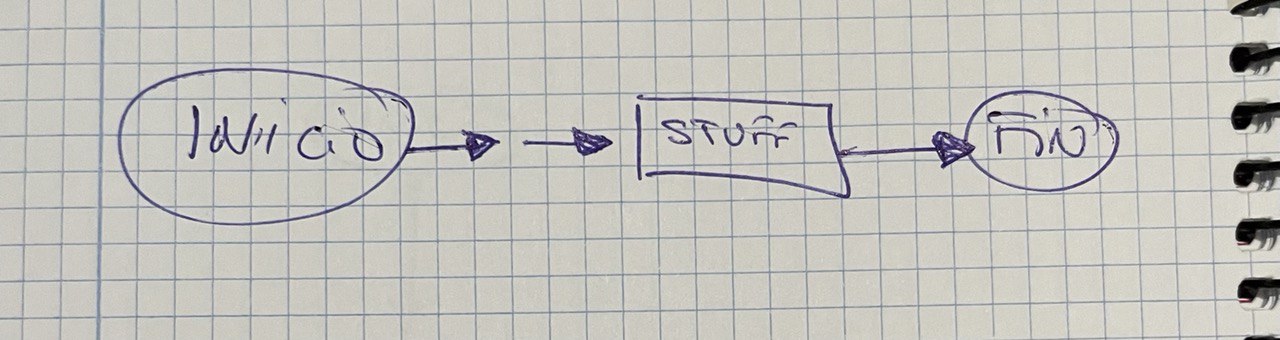 INiCiO
STUFF
FiN